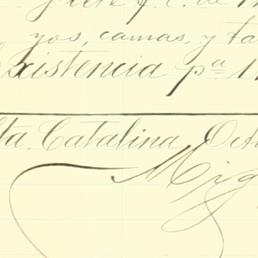 yos, camas, y ta
xistencia pª 1
ta. Catalina Oct
Mig